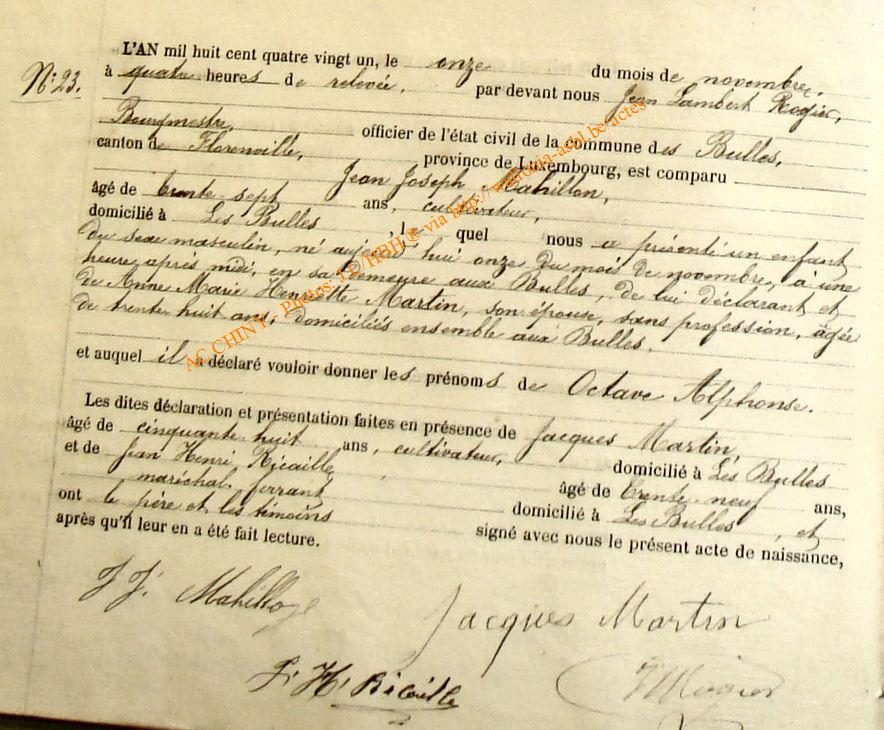 N.º 23.
L'AN mil huit cent quatre vingt un, le onze du mois de novembre,
à quatre heures de relevée, par devant nous Jean Lambert Rogier,
Bourgmestre, officier de l'état civil de la commune des Bulles,
canton de Florenville, province de Luxembourg, est comparu
Jean Joseph Mahillon,
âgé de trente sept ans, cultivateur,
domicilié à Les Bulles, lequel nous a présenté un enfant
du sexe masculin, né aujourd'hui onze du mois de novembre, à une
heure après midi, en sa demeure aux Bulles, de lui déclarant et
de Anne Marie Henriette Martin, son épouse, sans profession, âgée
de trente huit ans, domiciliés ensemble aux Bulles.
et auquel il a déclaré vouloir donner les prénoms de Octave Alphonse.
Les dites déclaration et présentation faites en présence de Jacques Martin,
âgé de cinquante huit ans, cultivateur, domicilié à Les Bulles
et de Jean Henri Ricaille, âgé de trente-neuf ans,
maréchal ferrant domicilié à Les Bulles, et
ont le père et les témoins signé avec nous le présent acte de naissance,
après qu'il leur en a été fait lecture.
J J. Mahillon
Jacques Martin
J. H. Ricaille
Rogier
AC CHINY - Photos TD/HBH ® via http://www. .be/actes